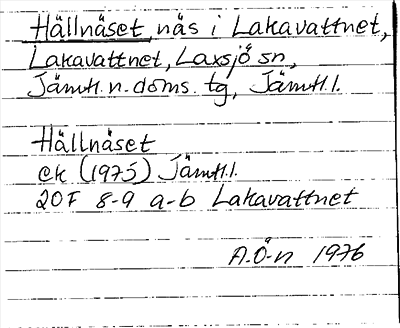 Hällnäset, näs i Lakavattnet,
Lakavattnet, Laxsjö sn,
Jämtl. n. doms. tg, Jämtl. l.
Hällnäset
ek (1975) Jämtl. l.
20F 8-9 a-b Lakavattnet
A.Ö-n 1976